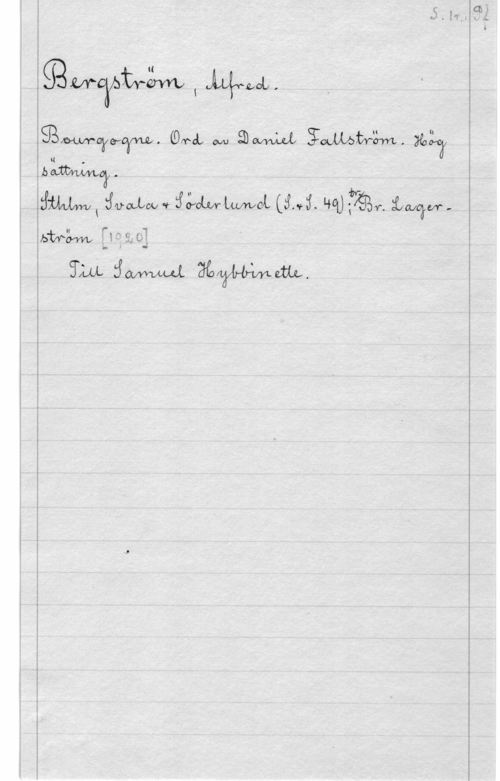 S. tr.
Bergström, Alfred.
Bourgogne. Ord av Daniel Fallström. Hög
sättning.
Sthlm, Svala & Söderlund (S.&S. 49); tr. Br. Lager-
ström [1920]
Till Samuel Hybbinette.